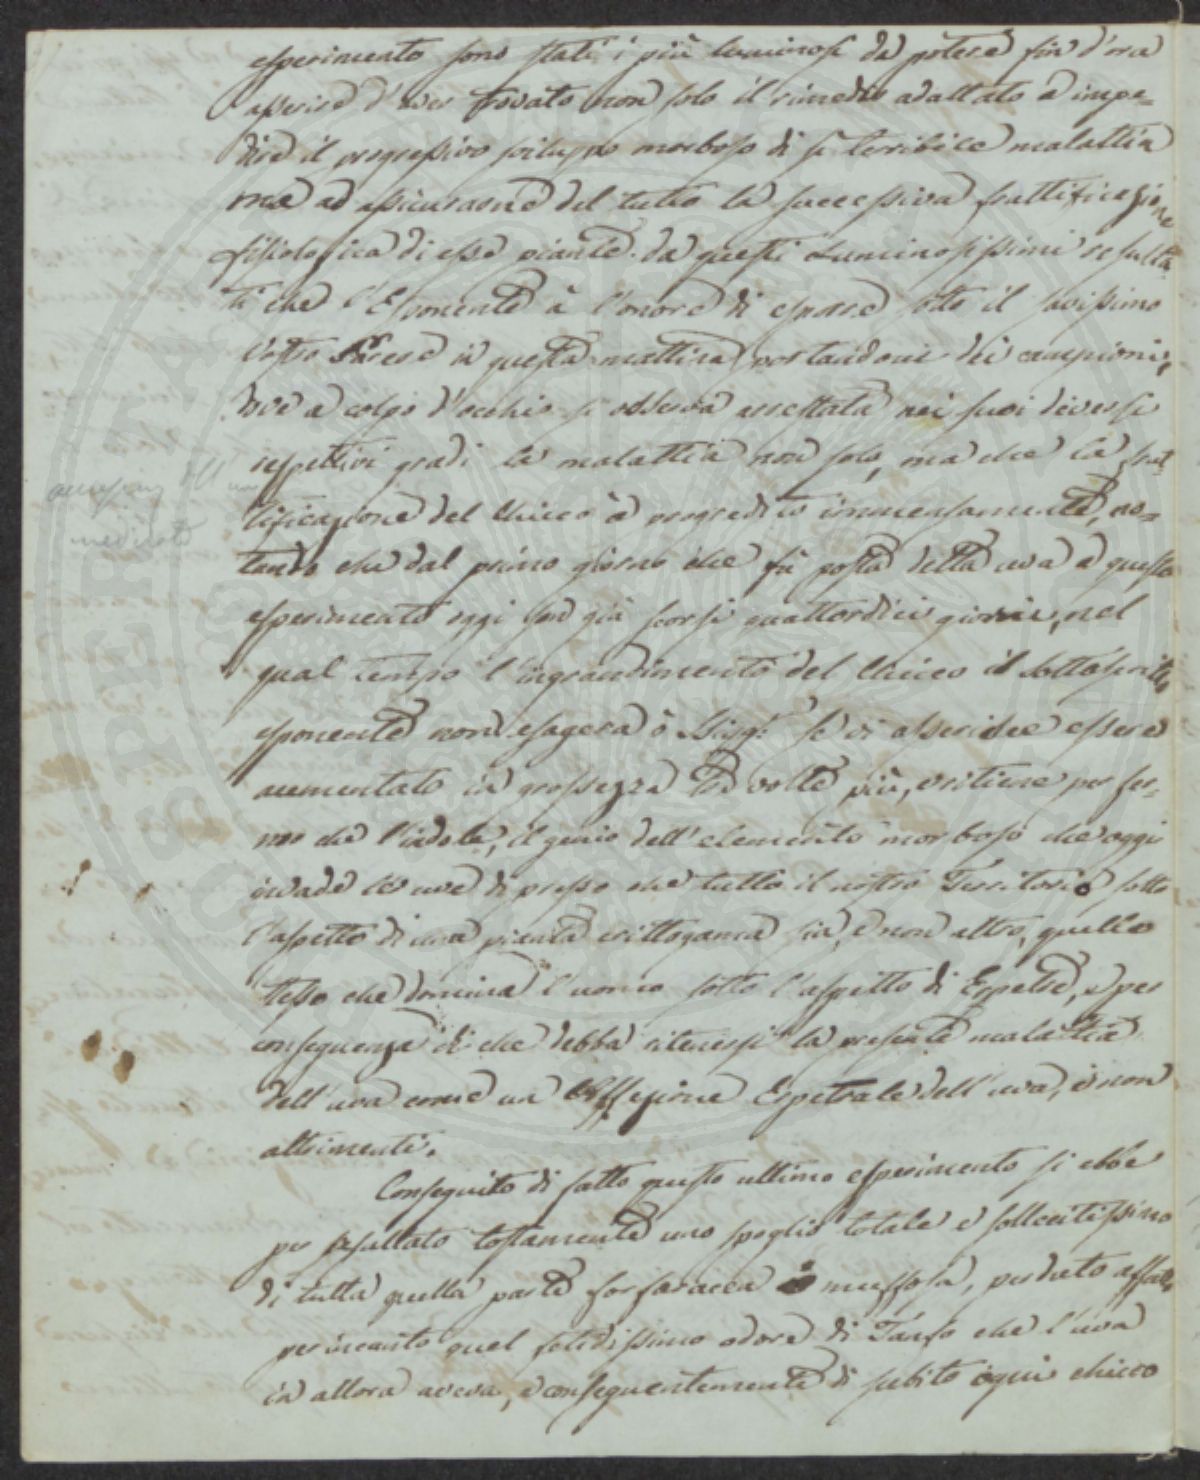 esperimento sono stati i più luminosi da potere fin d'ora
asserire d'aver trovato non solo il rimedio adattato a impe=
dire il progressivo sviluppo morboso di sì terribile malattia
ma ad assicurarne del tutto la successiva fruttificazione
fisiologica di esse piante. da questi Luminosissimi resulta
ti che l'Esponente à l'onore di esporre sotto il savissimo
Vostro Parere in questa mattina portandone dei campioni,
dove a colpo d'occhio si osserva arrestata nei suoi diversi
rispettivi gradi la malattia non solo, ma che la frut=
tificazione del Chicco è progredito immensamente, no=
tando che dal primo giorno che fù posta detta uva a questo
esperimento oggi son già scorsi quattordici giorni, nel
qual tempo l'ingrandimento del Chicco il sottoscritto
esponente non esagera o Sigg.i se vi asserisce essere
aumentato in grossezza tre volte più, e ritiene per fer=
mo che l'indole, il genio dell'elemento morboso che oggi
invade le uve di presso che tutto il nostro Territorio sotto
l'aspetto di una pianta crittogama sia, e non altro, quello
stesso che domina l'uomo sotto l'aspetto di Erpete, e per
conseguenza di che debba ritenersi la presente malattia
dell'uva come un Affezione Erpetrale dell'uva, e non
altrimenti.
Conseguito di fatto questo ultimo esperimento si ebbe
per resultato tostamente uno spoglio totale e sollecitissimo
di tutta quella parte forforacea o muffosa, perduto affatto
per incanto quel fetidissimo odore di Tanfo che l'uva
in allora aveva, e conseguentemente di subito ogni chicco